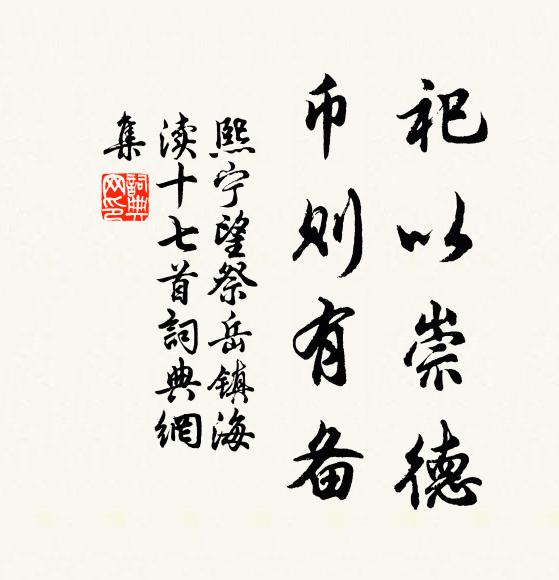 祀以崇德
币则有备
熙宁望祭岳镇海
渎十七首詞典網
集
詞典网印